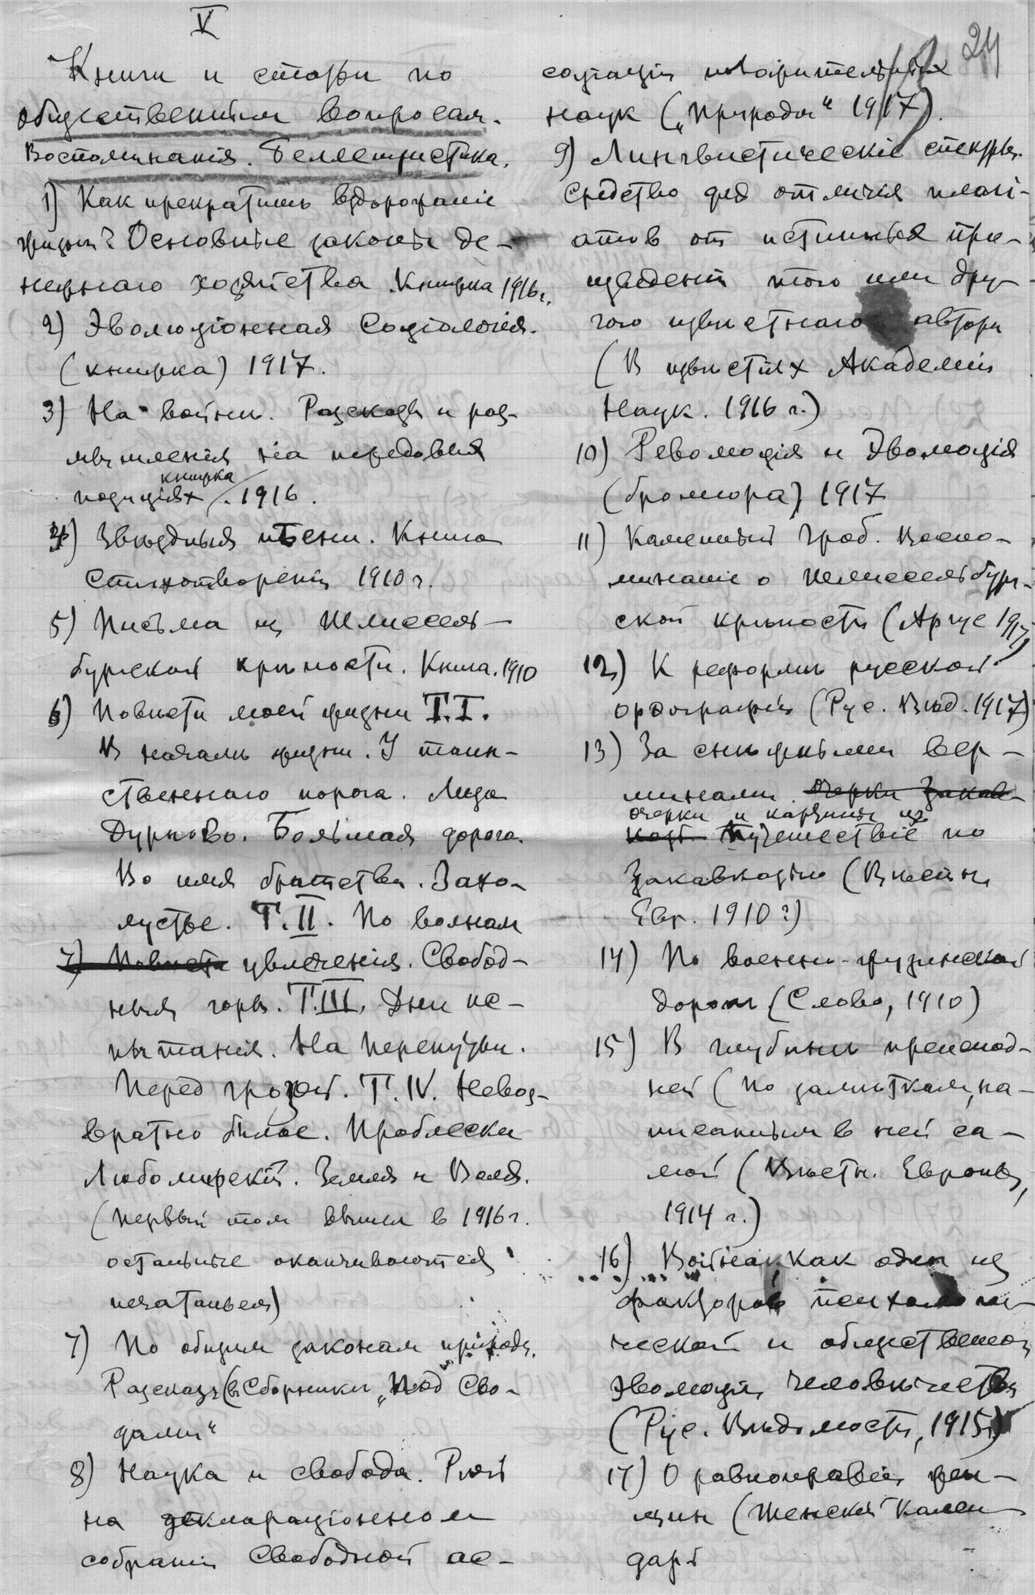 V
24
Книги и статьи по
общественным вопросам.
Воспоминанія. Беллетристика.
1) Как прекратить вздорожаніе
жизни? Основные законы де-
нежнаго хозяйства. Книжка 1916 г.
2) Эволюціонная Соціологія.
(книжка) 1917.
3) На войнѣ. Разсказы и раз-
мышленія на передовых
книжка
позиціях. 1916.
4) Звѣздныя пѣсни. Книга
Стихотвореній 1910 г.
5) Письма из Шлиссель-
бургской крѣпости. Книга. 1910
6) Повѣсти моей жизни Т.I.
В началѣ жизни. У таин-
ственнаго порога. Лиза
Дурново. Большая дорога.
Во имя братства. Захо-
лустье. Т.II. По волнам
7) Повѣсти увлеченія. Свобод-
ныя горы. Т.III. Дни ис-
пытанія. На перепутьи.
Перед грозой. Т.IV. Невоз-
вратно былое. Проблески
Любомирскій. Земля и Воля.
(первый том вышел в 1916 г.
остальные оканчиваются
печатаньем)
7) По общим законам природы.
Разсказ (в Сборники „Под Сво-
дами“
8) Наука и свобода. Рѣчь
на декларационном
собраніи Свободной ас-
соціаціи положительных
наук („Природа“ 1917).
9) Лингвистическіе спектры.
Средство для отличія плагі-
атов от истинных про-
изведеній того или дру-
гого извѣстнаго автора
(В извѣстіях Академіи
Наук. 1916 г.)
10) Революція и Эволюція
(брошюра) 1917
11) Каменный гроб. Воспо-
минаніе о Шлиссельбург-
ской крѣпости (Аргус 1917)
12) К реформѣ русской
орѳографіи (Рус. Вѣд. 1917)
13) За снѣжными вер-
шинами. очерки Закав-
очерки и картины из
каз. путешествіе по
Закавказію (Вѣстн.
Евр. 1910 г.)
14) По военно-грузинской
дорогѣ (Слово, 1910)
15) В глубинѣ преиспод-
ней (по замѣткам, на-
писанным в ней са-
мой (Вѣстн. Европы,
1914 г.)
16) Война, как один из
факторов психологи-
ческой и общественной
эволюціи человѣчества
(Рус. Вѣдомости, 1915)
17) О равноправіи жен-
щин (Женскій Кален
дарь